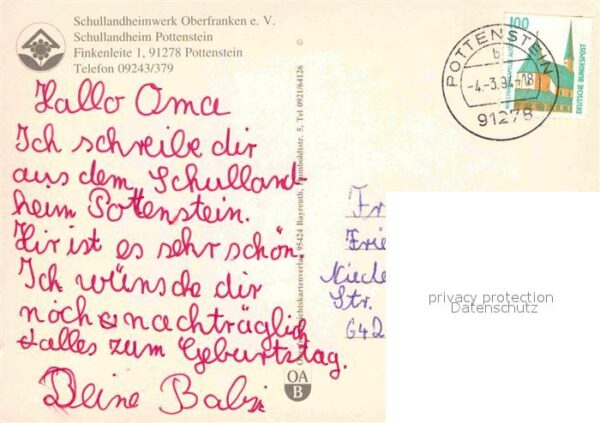 Schullandheimwerk Oberfranken e. V.
Schullandheim Pottenstein
Finkenleite 1, 91278 Pottenstein
Telefon 09243/379
Hallo Oma
Ich schreibe dir
aus dem Schulland-
heim Pottenstein.
Hir ist es sehr schön
Ich wünsche dir
noch nachträglich
alles zum Geburtstag.
Deine Babsi
95424 Bayreuth, Humboldtstr. 5, Tel 0921/64126
OA
B
POTTENSTEIN
b
-4.-3.94-18
91278
100
DEUTSCHE BUNDESPOST
Fr
Frie
Niede
Str.
642
privacy protection
Datenschutz